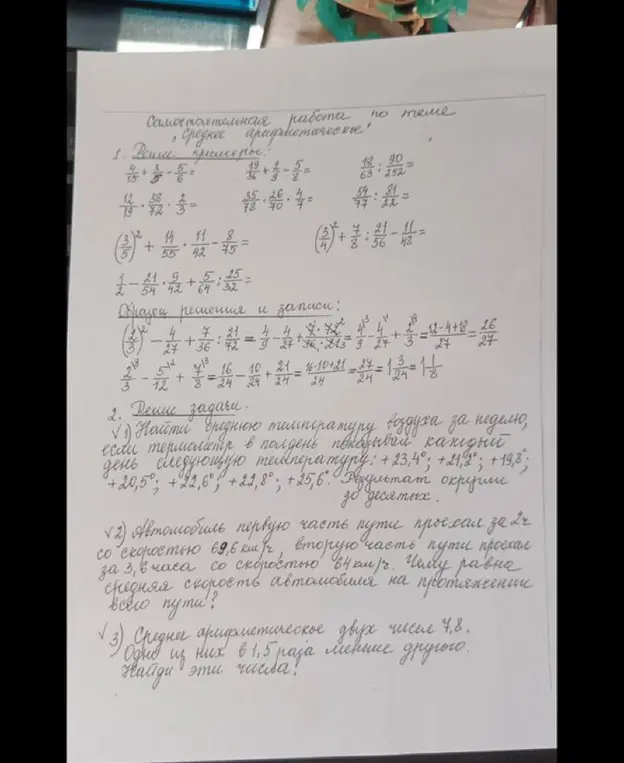 Самостоятельная работа по теме
"Среднее арифметическое"
1. Реши примеры:
4/15 + 3/5 - 5/6 = 19/36 + 2/9 - 5/8 = 18/63 : 90/252 =
12/19 · 38/72 · 2/3 = 35/78 · 26/70 · 4/7 = 54/77 : 81/22 =
(3/5)² + 14/55 · 11/42 - 8/75 = (3/4)² + 7/8 : 21/56 - 11/48 =
1/2 - 21/54 · 9/42 + 5/64 : 25/32 =
Образец решения и записи:
(2/3)² - 4/27 + 7/36 : 21/72 = 4/9 - 4/27 + 7·72/36·21 = 4/9 - 4/27 + 2/3 = 12-4+18/27 = 26/27
2/3 - 5/12 + 7/8 = 16/24 - 10/24 + 21/24 = 16-10+21/24 = 27/24 = 1 3/24 = 1 1/8
2. Реши задачи.
√1) Найти среднюю температуру воздуха за неделю,
если термометр в полдень показывал каждый
день следующую температуру: +23,4°; +21,2°; +19,8°;
+20,5°; +22,6°; +22,8°; +25,6°. Результат округли
до десятых.
√2) Автомобиль первую часть пути проехал за 2ч
со скоростью 69,6 км/ч, вторую часть пути проехал
за 3,6 часа со скоростью 64 км/ч. Чему равна
средняя скорость автомобиля на протяжении
всего пути?
√3) Среднее арифметическое двух чисел 7,8.
Одно из них в 1,5 раза меньше другого.
Найди эти числа!